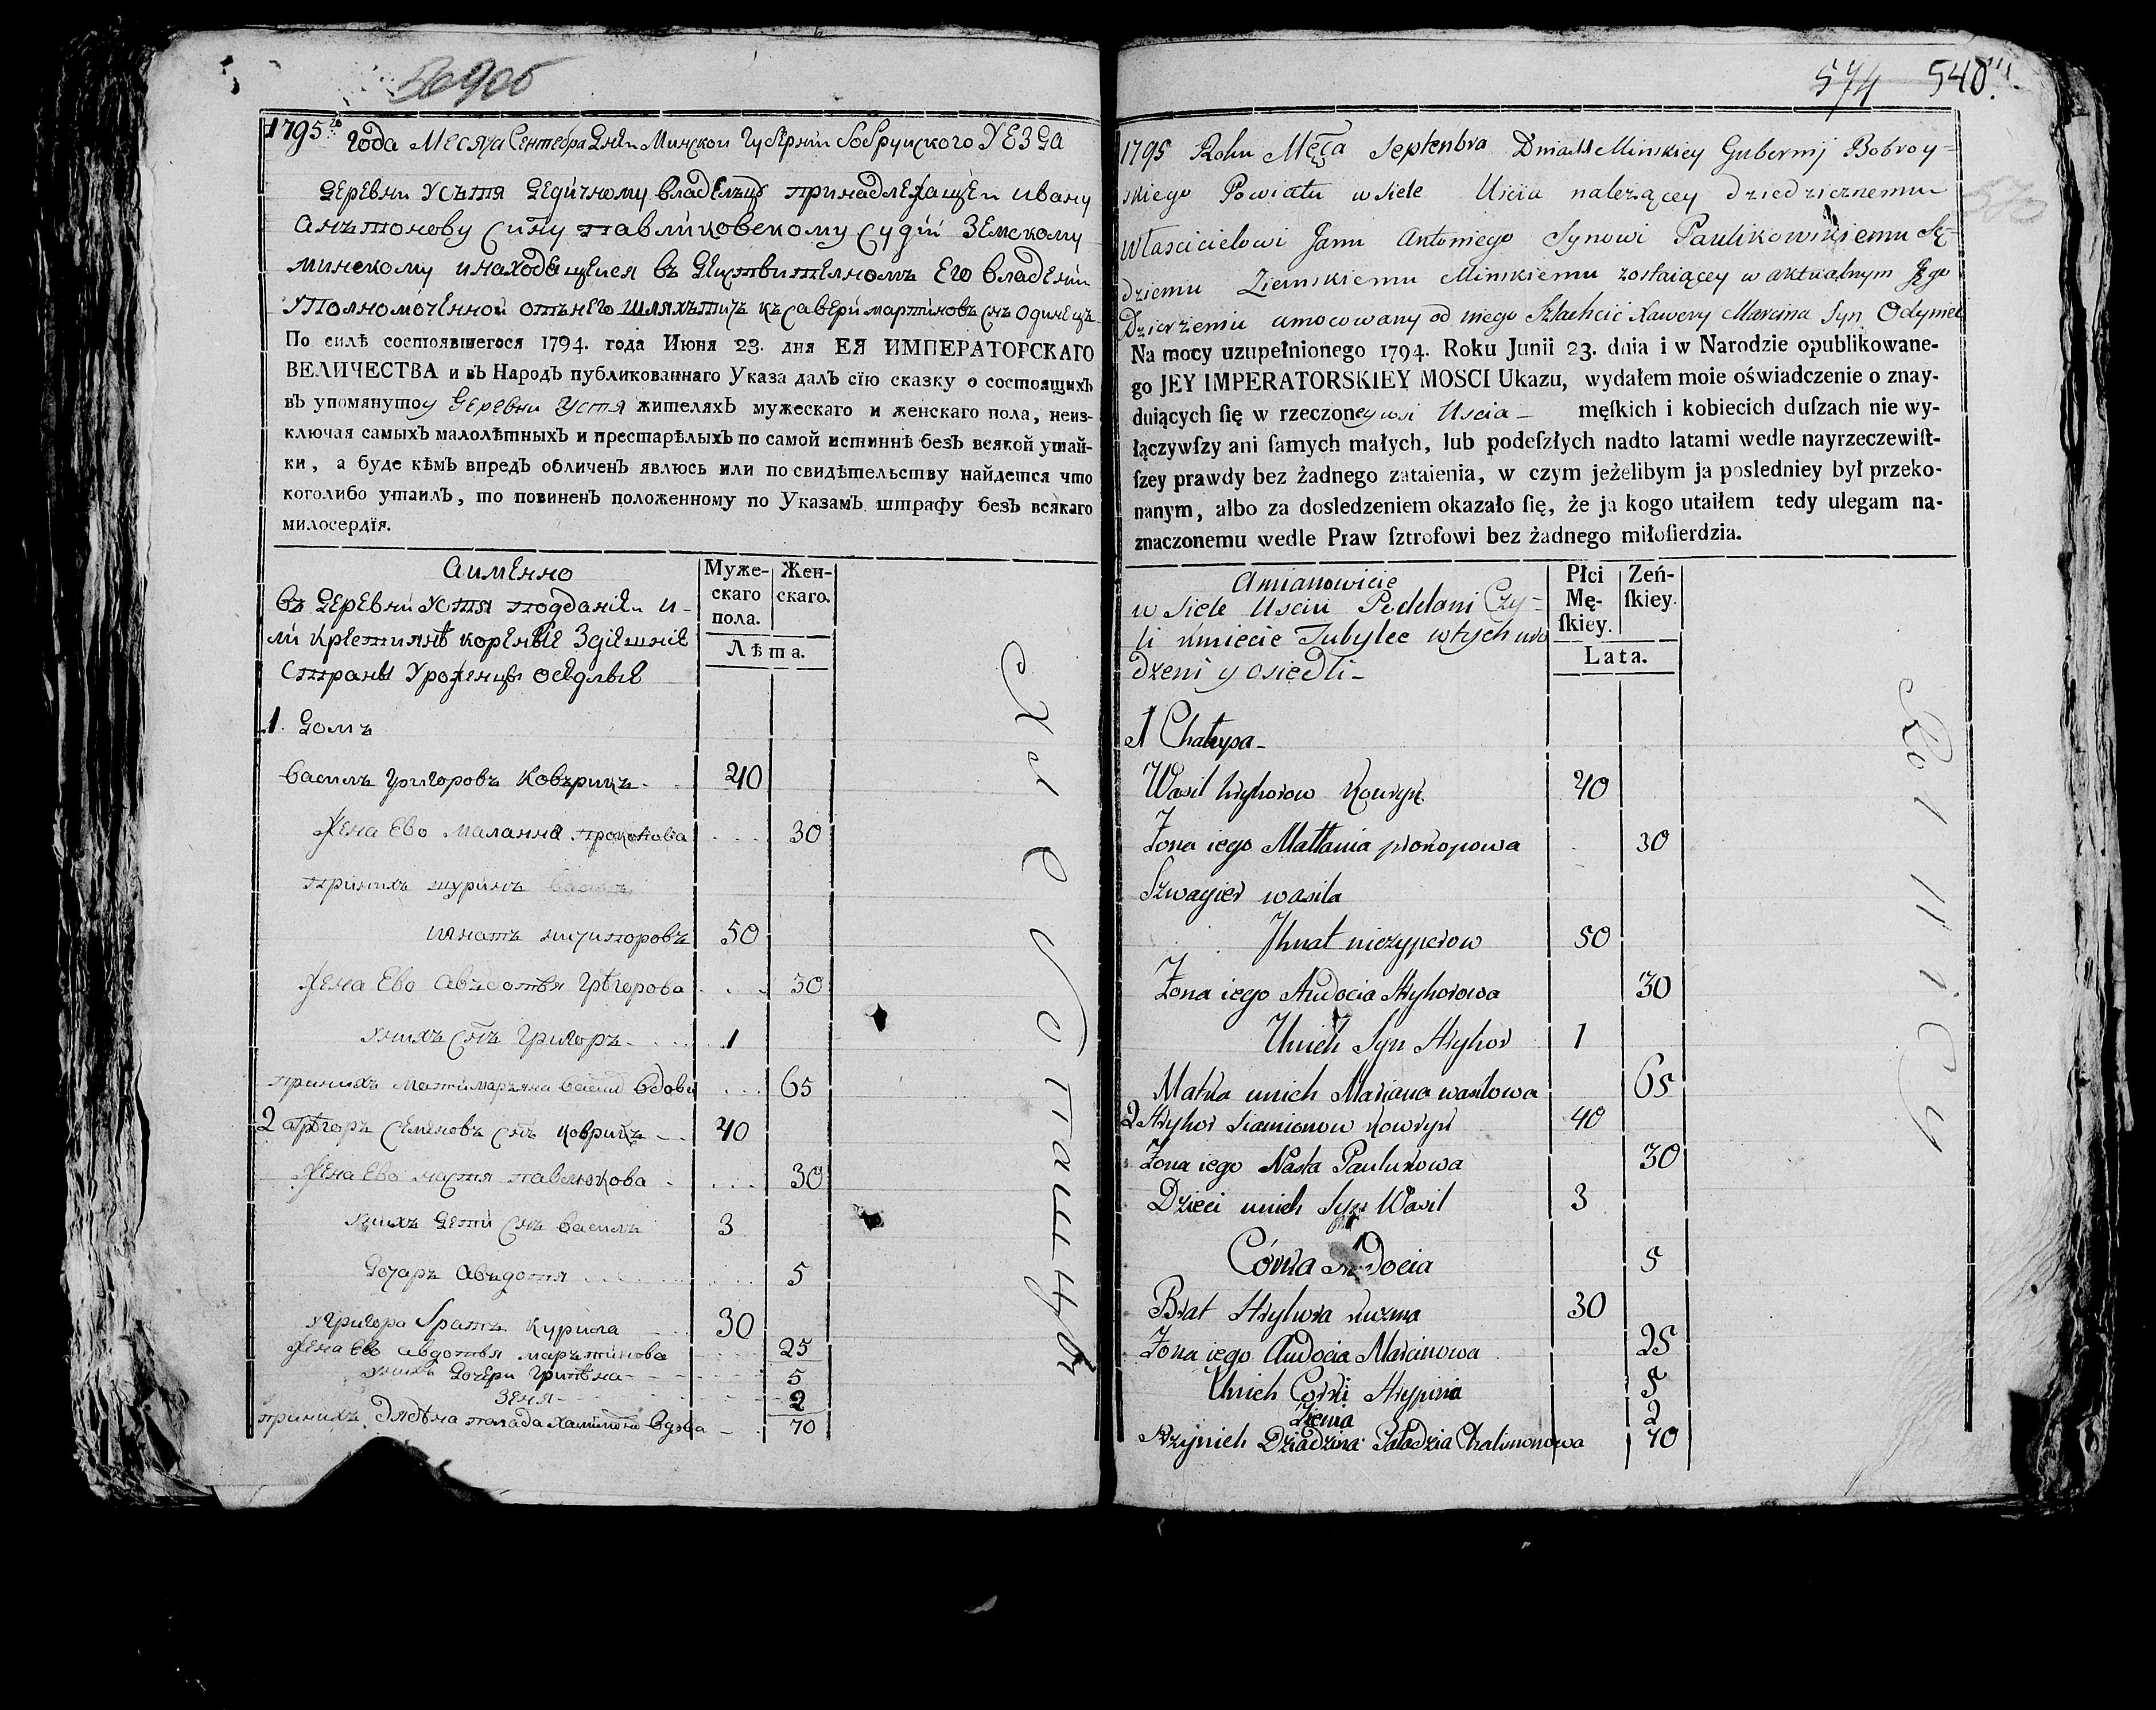 1795го года Месяца Сентебра Дня Минской Губернии Бобруйского УЕЗДА
Деревни Устя Дедичному владелцу принадлежащеи Ивану
Анътонову Сину Павликовскому Судіи Земскому
Минскому и находящеися въ Деиствителномъ Его владении
Уполномоченной отъ него шляхътичъ Късавери Мартиновъ снъ Одинецъ
По силѣ состоявшегося 1794. года Июня 23. дня ЕЯ ИМПЕРАТОРСКАГО
ВЕЛИЧЕСТВА и въ Народъ публикованнаго Указа далъ сїю сказку о состоящихъ
въ упомянутоу Деревни Устя жителяхъ мужескаго и женскаго пола, неиз-
ключая самыхъ малолѣтныхъ и престарѣлыхъ по самой истиннѣ безъ всякой утай-
ки, а буде кѣмъ впредъ обличенъ явлюсь или по свидѣтельству найдется что
коголибо утаилъ, то повиненъ положенному по Указамъ штрафу безъ всякаго
милосердїя.
Аименно
въ Деревни Устя подданіе и-
ли крестиянѣ кореніе Здіешніе
Страны Уроженцы оседлые
Муже-
скаго
пола.
Жен-
скаго.
Лѣта.
1. Домъ
Василъ Григоровъ Ковърикъ 40
Жена Ево Малання Прокопова 30
Принихъ шуринъ Васила
Игнатъ Ничипоровъ 50
Жена Ево Авъдотья Григорова 30
Унихъ Снъ Григоръ 1
Принихъ Мати Маръяна Васил Вдова 65
2 Григоръ Семеновъ Снъ Коврикъ 40
Жена Ево Настя Павлюкова 30
Унихъ Дети Снъ Василъ 3
Дочаръ Авъдотя 5
У Григора Братъ Курила 30
Жена Ево Авдотья Маръти́нова 25
Унихъ Дочери Грипѣна 5
Зеня 2
Принихъ Палада Халимонова Вдова 70
574 540
1795 Roku Męca Septenbra Dnia Minskiey Gubernij Bobroy-
skiego Powiatu w siele Uscia nalezącey dziedzicznemu
Własccicielowi Janu Antoniego Synowi Paulikowskiemu Sę-
dziemu Ziemskiemu Minskiemu zostaiącey w aktualnym Jego
Dzierzeniu umocowany od niego Szlachcic Xawery Marcina Syn Odyniec
Na mocy uzupełnionego 1794. Roku Junii 23. dnia i w Narodzie opublikowane-
go JEY IMPERATORSKIEY MOSCI Ukazu, wydałem moie oświadczenie o znay-
duiących ſię w rzeczoney wsi Uscia — męſkich i kobiecich duſzach nie wy-
łączywſzy ani ſamych małych, lub podeſzłych nadto latami wedle nayrzeczewiſt-
ſzey prawdy bez żadnego zataienia, w czym jeżelibym ja posledniey był przeko-
nanym, albo za dosledzeniem okazało ſię, że ja kogo utaiłem tedy ulegam na-
znaczonemu wedle Praw ſztrofowi bez żadnego miłoſierdzia.
Amianowicie
w Siele Usciu Poddani Czy-
li kmiecie Tubylce w tych uro
dzeni y osiedli —
Płci
Mę-
ſkiey.
Zeń-
ſkiey.
Lata.
1 Chałupa —
Wasil Hryhorow Kowryk 40
Zona iego Małania Prokopowa 30
Szwagier wasila
Jhnat niczyperow 50
Zona iego Audocia Hryhorowa 30
Unich Syn Hryhor 1
Matka unich Mariana wasilowa 65
2 Hryhor siamionow Kowryk 40
Zona iego Nasta Paulukowa 30
Dzieci unich Syn Wasil 3
Córka Audocia 5
Brat Hryhora Kuzma 30
Zona iego Audocia Marcinowa 25
Unich Corki Hrypina 5
Zienia 2
Przynich Dziadzina Paładzia Chalimonowa 70